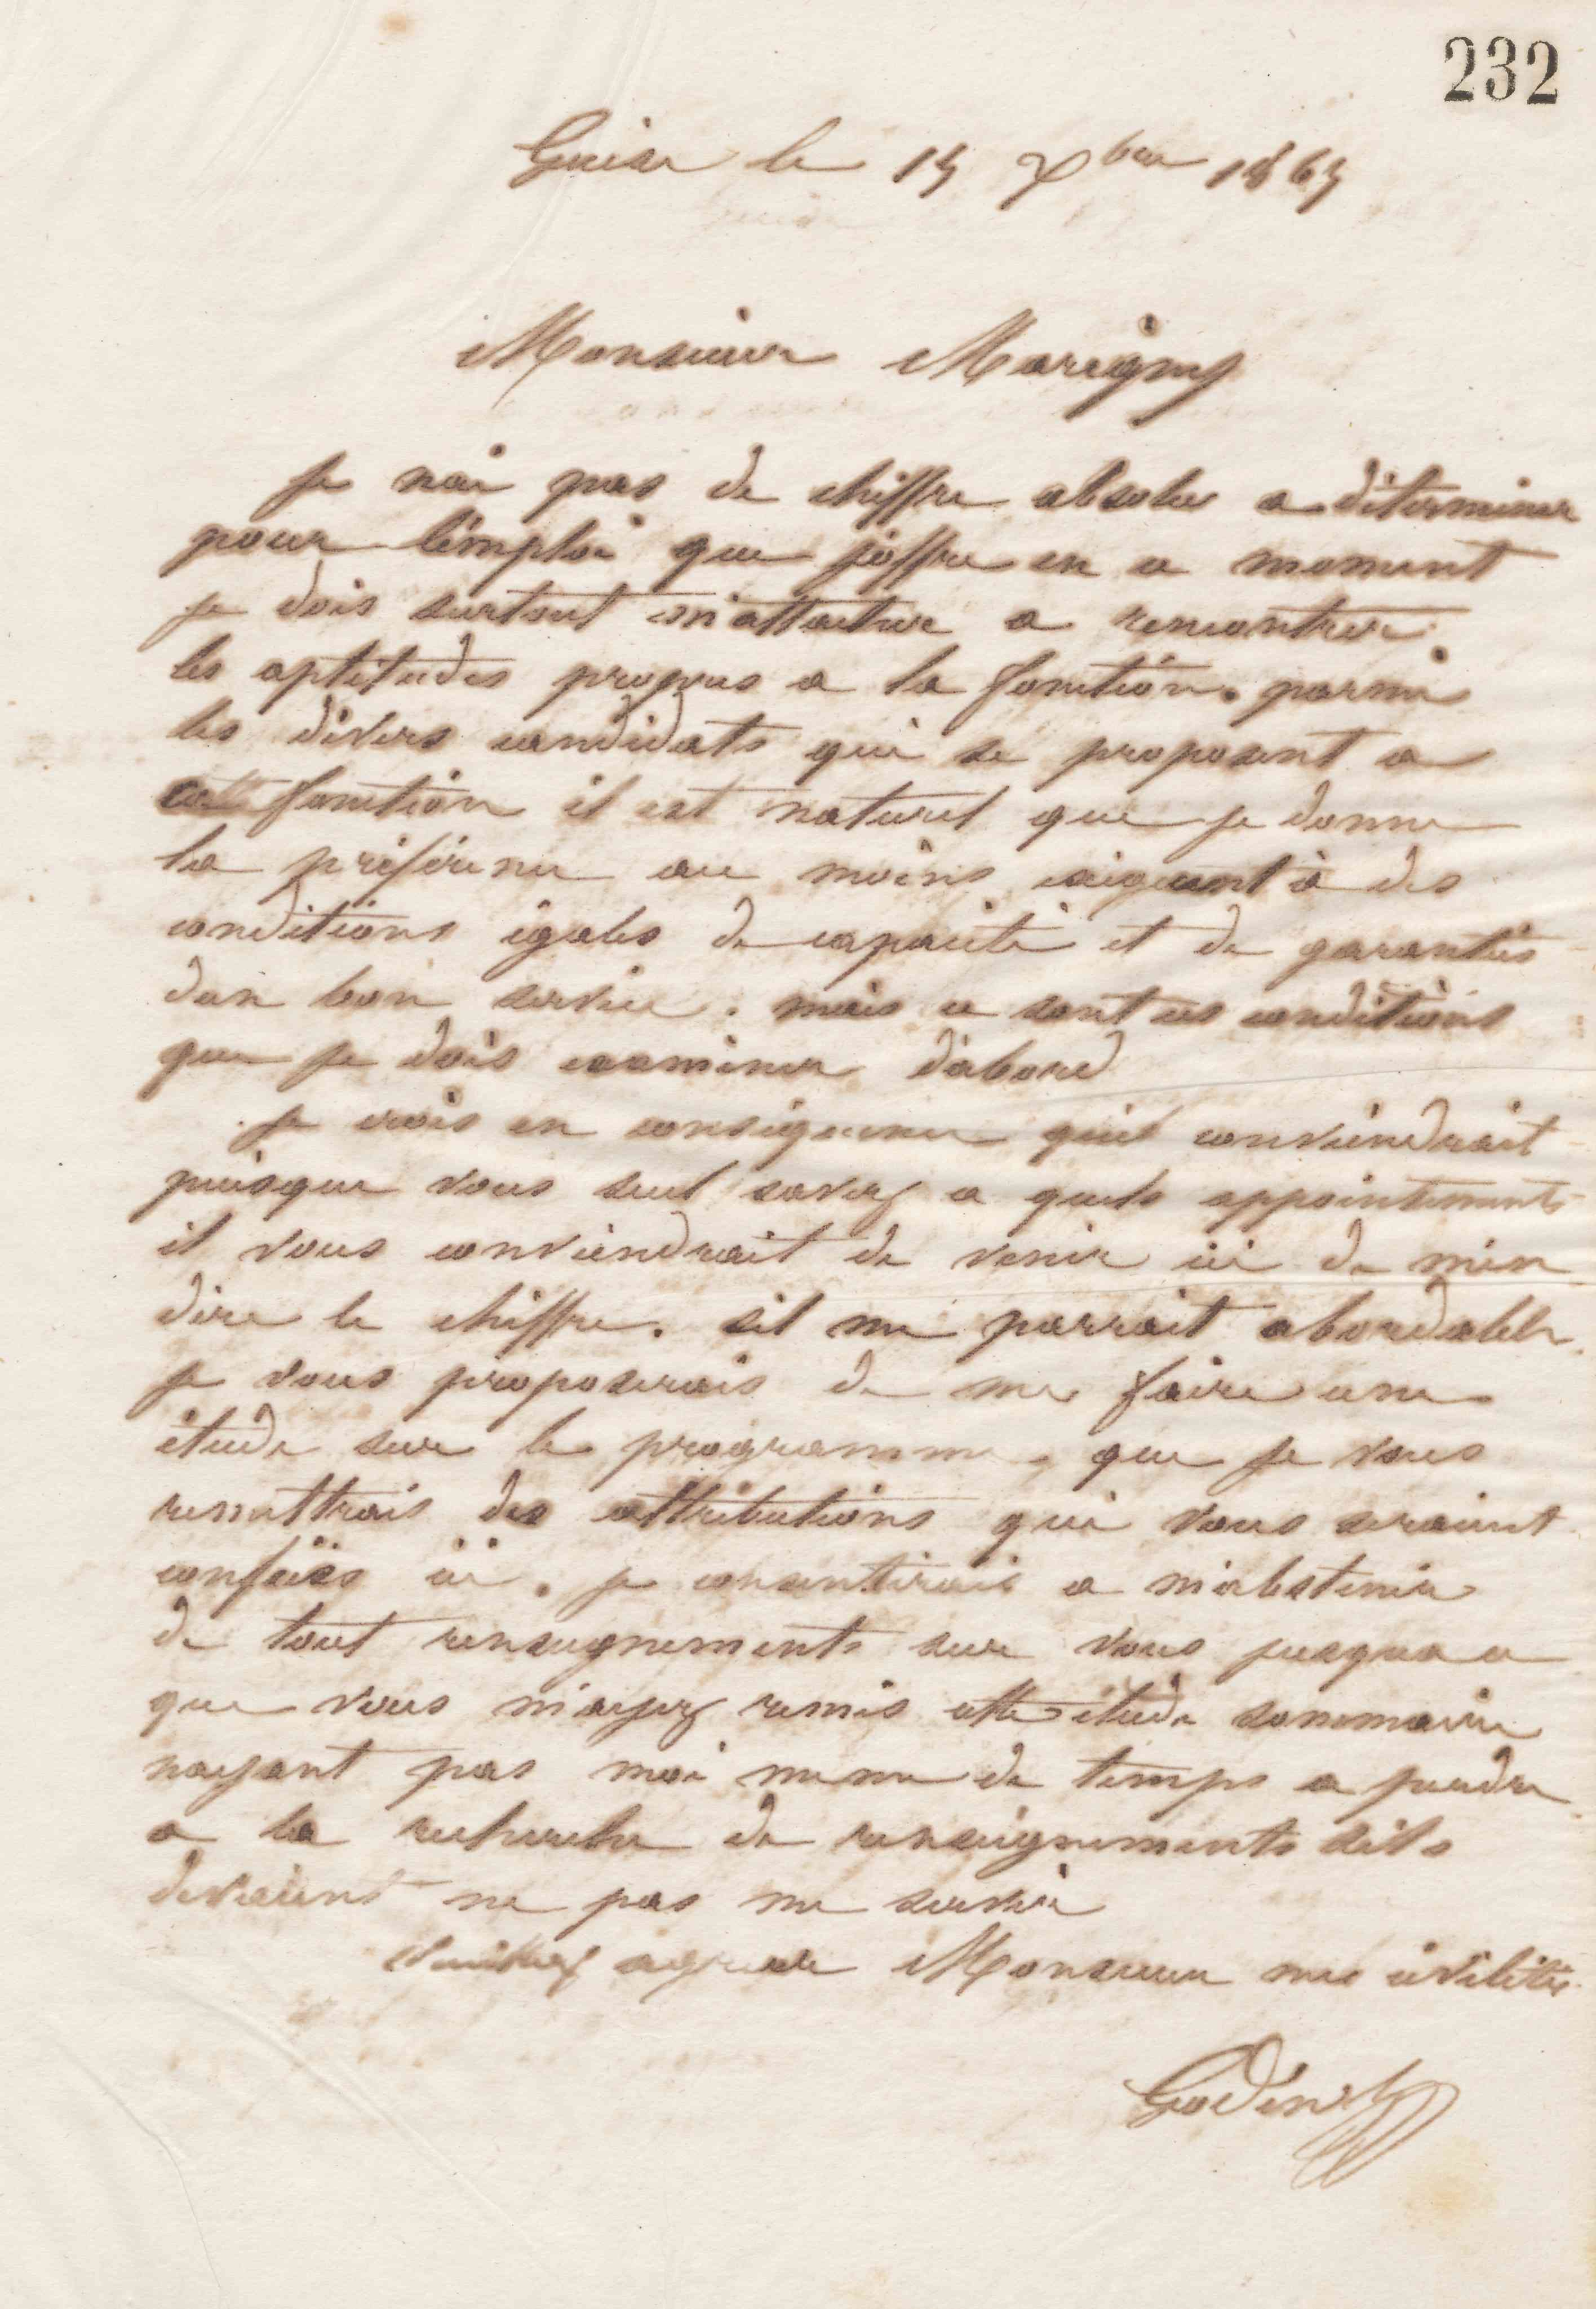 232
Guise le 15 Xbre 1865
Monsieur Marigny
Je nai pas de chiffre absolu a déterminer
pour l'emploi que j'offre en ce moment
je dois surtout m'attacher a rencontrer
les aptitudes propres a la fonction. parmi
les divers candidats qui se proposent a
cette fonction il est naturel que je donne
la préférence au moins exigeant à des
conditions égales de capacité et de garanties
d'un bon service. mais ce sont ces conditions
que je dois examiner d'abord
Je crois en conséquence quil conviendrait
puisque vous seul savez a quels appointements
il vous conviendrait de venir ici de m'en
dire le chiffre. sil me parrait abordable
je vous proposerais de me faire une
étude sur le programme que je vous
remettrais des attributions qui vous seraient
confiées ici. je consentirais a m'abstenir
de tout renseignements sur vous jusqua ce
que vous m'ayez remis cette étude sommaire
nayant pas moi meme de temps a perdre
a la recherche de renseignements sils
devaient ne pas me servir
Veuillez agréer Monsieur mes civilités
Godin